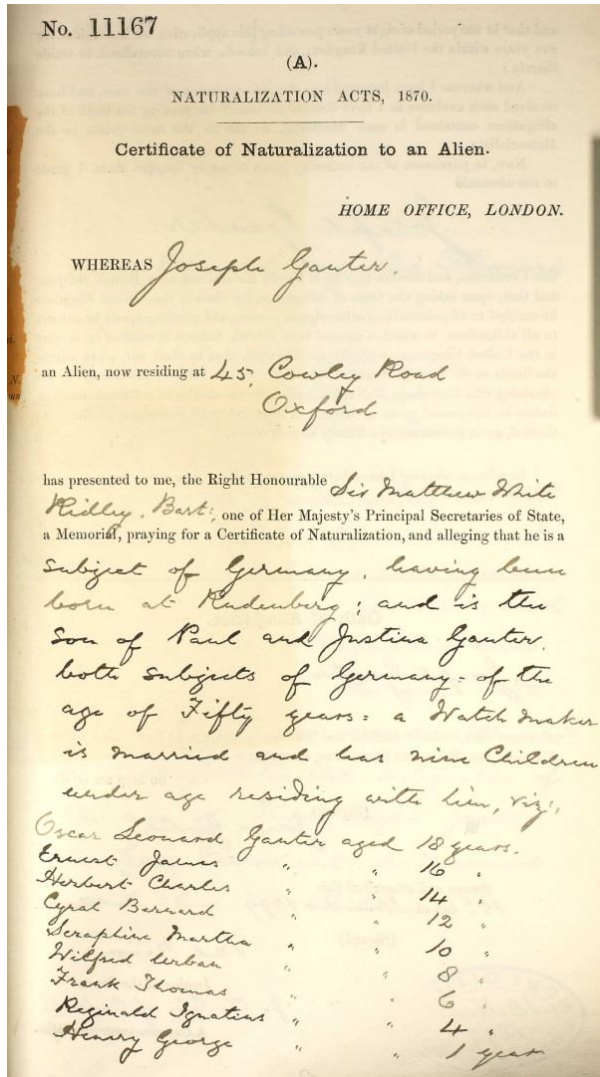 No. 11167
(A).
NATURALIZATION ACTS, 1870.
Certificate of Naturalization to an Alien.
HOME OFFICE, LONDON.
WHEREAS Joseph Ganter.
an Alien, now residing at 45, Cowley Road
Oxford
has presented to me, the Right Honourable Sir Matthew White
Ridley. Bart:, one of Her Majesty's Principal Secretaries of State,
a Memorial, praying for a Certificate of Naturalization, and alleging that he is a
subject of Germany, having been
born at Rudenberg; and is the
son of Paul and Justina Ganter.
both subjects of Germany = of the
age of Fifty years = a Watch maker
is married and has nine Children
under age residing with him, viz:,
Oscar Leonard Ganter aged 18 years.
Ernest James " " 16 "
Herbert Charles " " 14 "
Cyral Bernard " " 12 "
Seraphine Martha " " 10 "
Wilfred Urban " " 8 "
Frank Thomas " " 6 "
Reginald Ignatius " " 4 "
Henry George " " 1 year